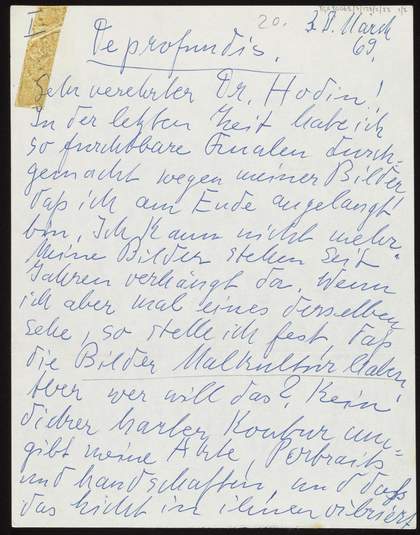 I
20. 28. March
69.
De profundis.
Sehr verehrter Dr. Hodin!
In der letzten Zeit habe ich
so furchtbare Qualen durch-
gemacht wegen meiner Bilder
daß ich am Ende angelangt
bin. Ich kann nicht mehr.
Meine Bilder stehen seit
Jahren verhängt da. Wenn
ich aber mal eines derselben
sehe, so stelle ich fest, daß
die Bilder Malkultur haben!
Aber wer will das? Kein
dicker harter Kontur um-
gibt meine Akte Portraits
und Landschaften und daß
das Licht in ihnen vibriert